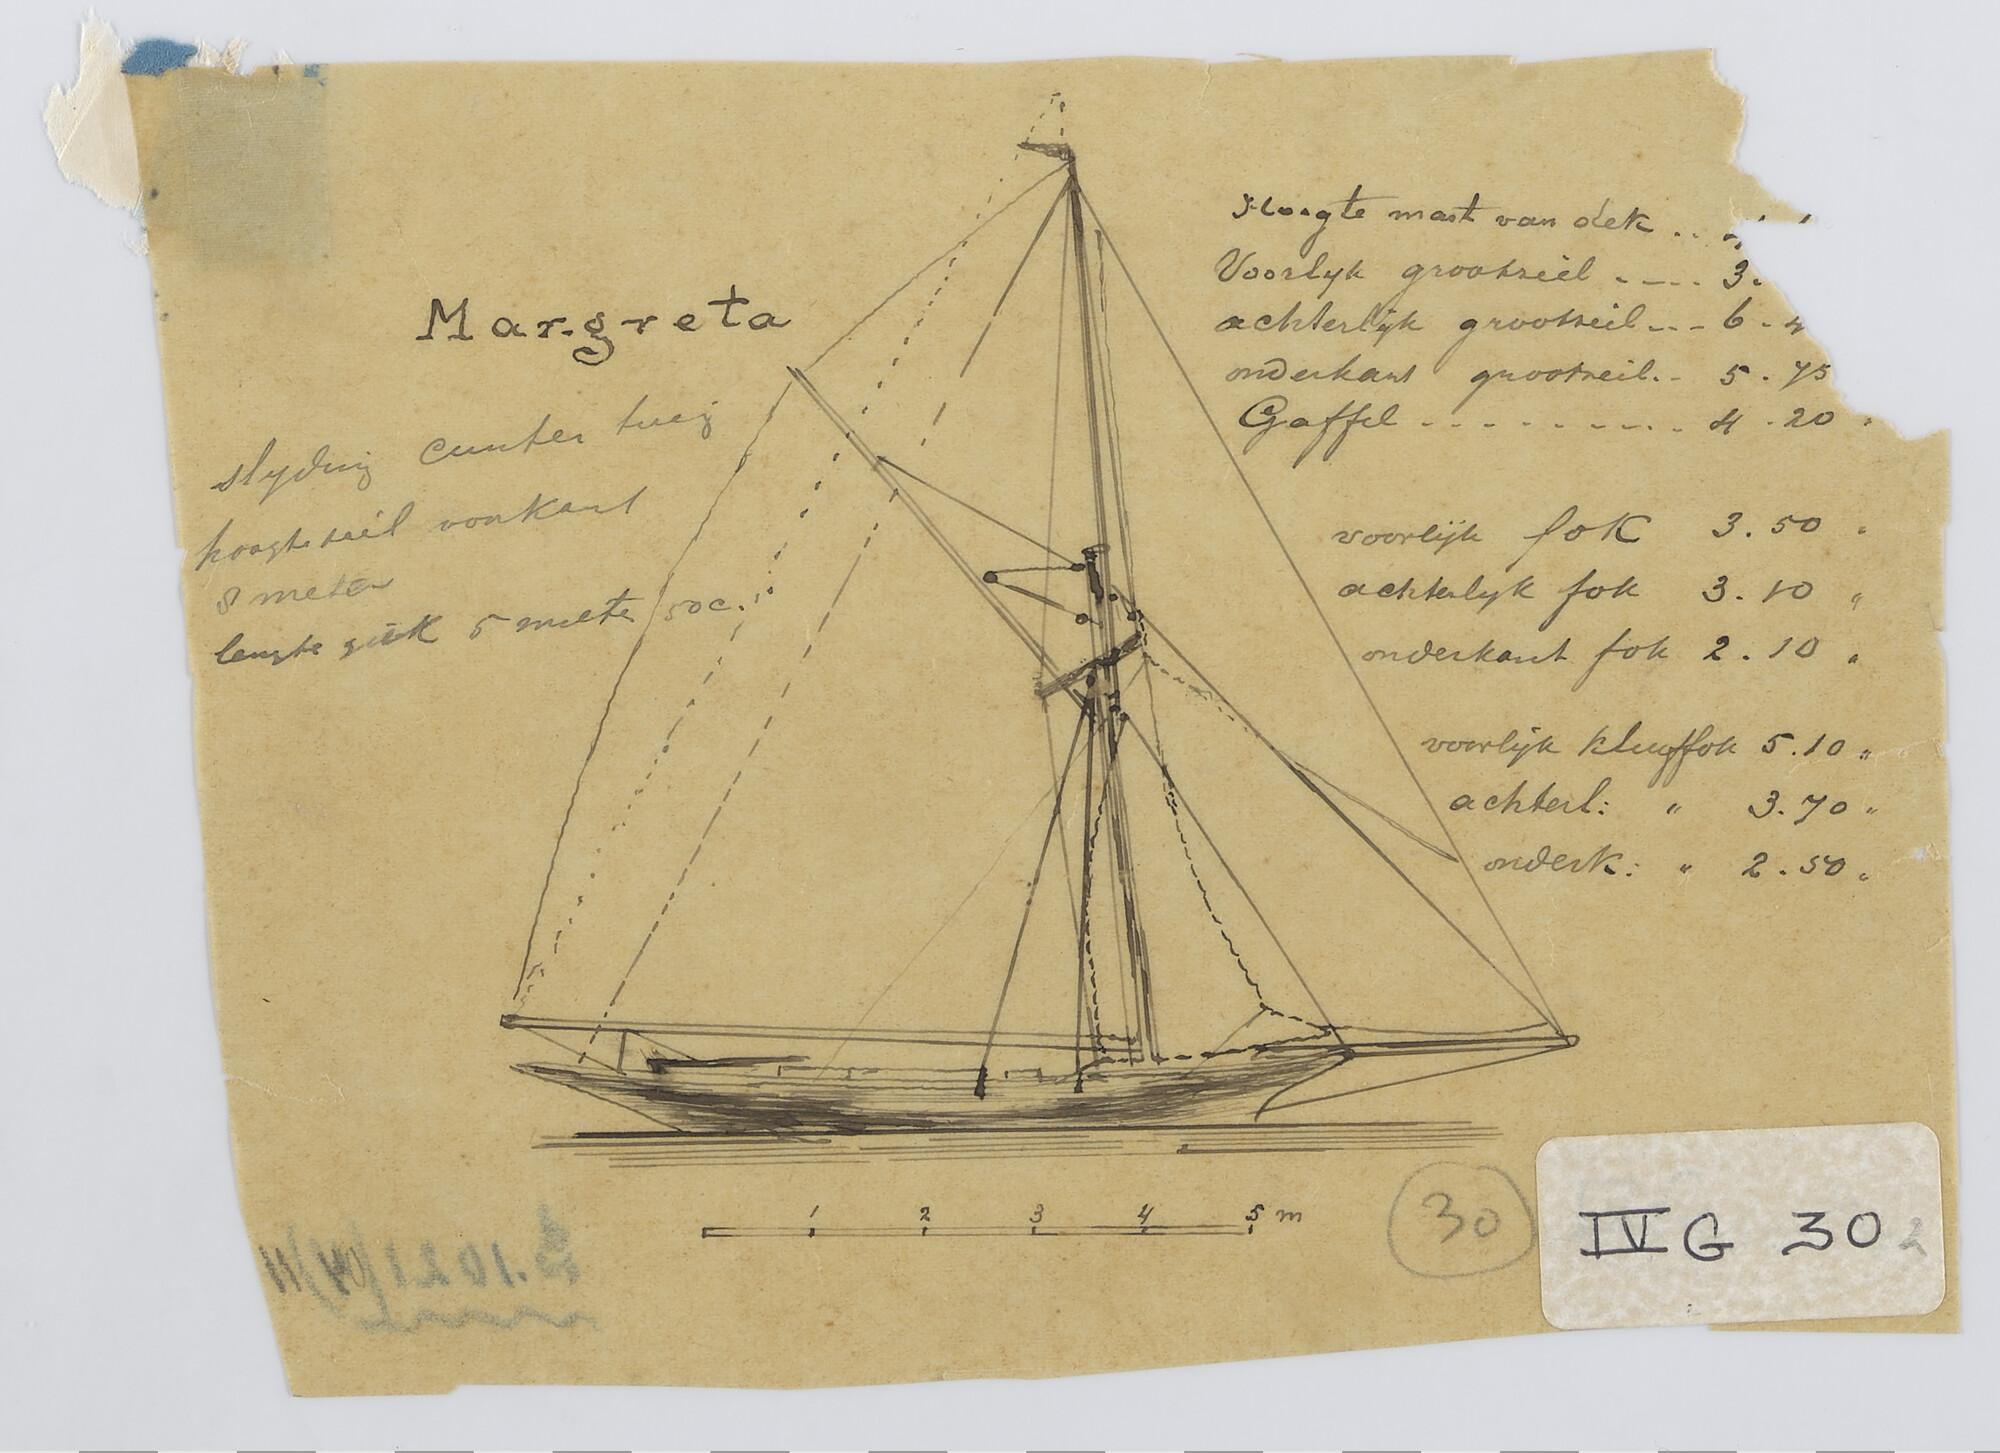 Margreta
slyding cunter tuig
hoogte zeil voorkant
8 meter
lengte giek 5 meter 50c.
Hoogte mast van dek ..
Voorlyk grootzeil .... 3.
achterlijk grootzeil... 6.4
onderkant grootzeil.. 5.75
Gaffel .......... 4.20 "
voorlijk fok 3.50 "
achterlyk fok 3.10 "
onderkant fok 2.10 "
voorlijk kluyffok 5.10 "
achterl: " 3.70 "
onderk: " 2.50 "
1 2 3 4 5 m
30
IV G 30 2